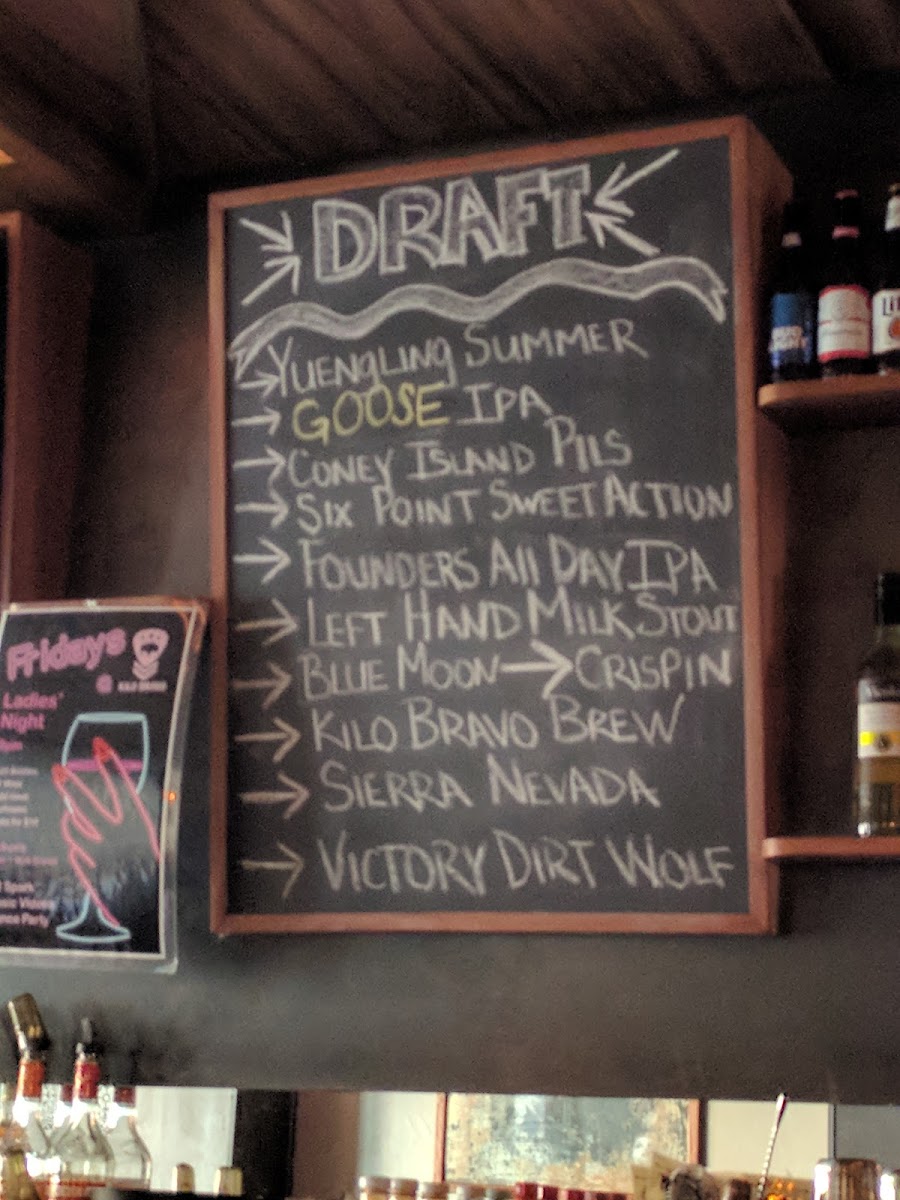 DRAFT
YUENGLING SUMMER
GOOSE IPA
CONEY ISLAND PILS
SIX POINT SWEET ACTION
FOUNDERS All DAY IPA
LEFT HAND MILK STOUT
BLUE MOON → CRISPIN
KILO BRAVO BREW
SIERRA NEVADA
VICTORY DIRT WOLF
Fridays
@ KILO BRAVO
Ladies'
Night
Party
BUD
LIGHT